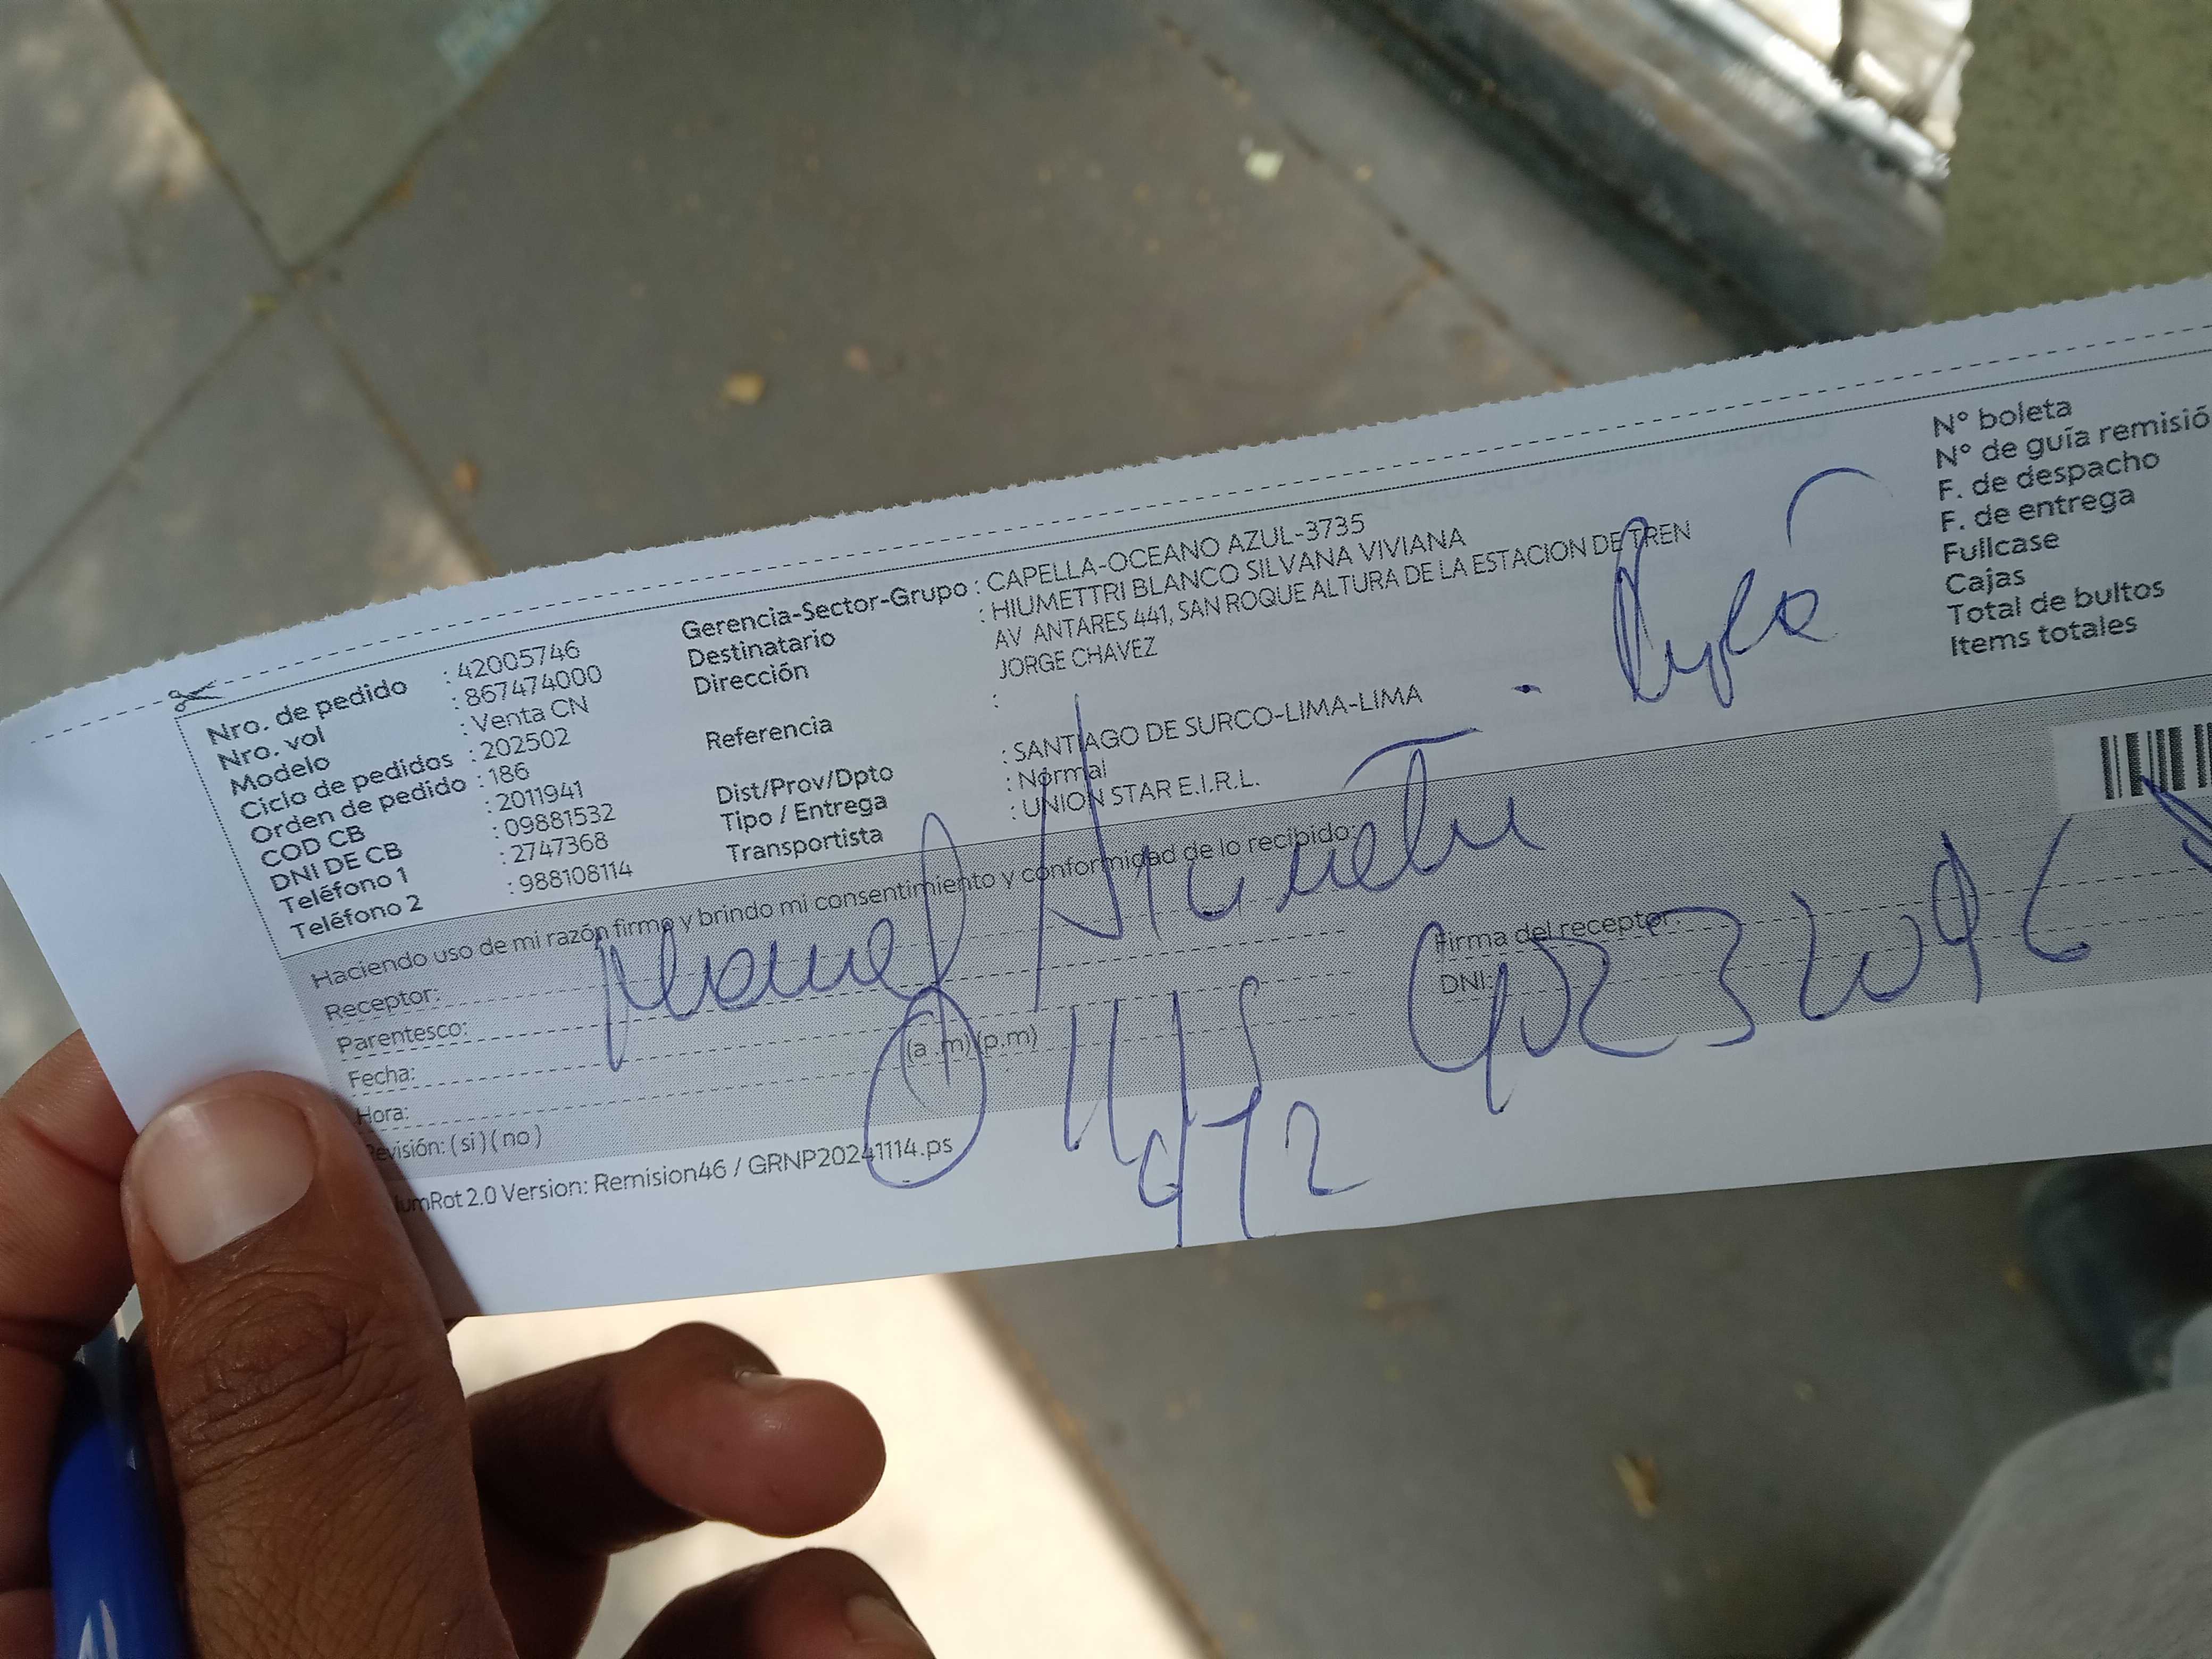 Nro. de pedido : 42005746
Nro. vol : 867474000
Modelo : Venta CN
Ciclo de pedidos : 202502
Orden de pedido : 186
COD CB : 2011941
DNI DE CB : 09881532
Teléfono 1 : 2747368
Teléfono 2 : 988108114
Gerencia-Sector-Grupo : CAPELLA-OCEANO AZUL-3735
Destinatario : HIUMETTRI BLANCO SILVANA VIVIANA
Dirección AV ANTARES 441, SAN ROQUE ALTURA DE LA ESTACION DE TREN
JORGE CHAVEZ
Referencia :
Dist/Prov/Dpto : SANTIAGO DE SURCO-LIMA-LIMA
Tipo / Entrega : Normal
Transportista : UNION STAR E.I.R.L.
N° boleta
N° de guía remisió
F. de despacho
F. de entrega
Fullcase
Cajas
Total de bultos
Items totales
Haciendo uso de mi razón firmo y brindo mi consentimiento y conformidad de lo recibido:
Receptor: Manuel
Parentesco:
Fecha:
Hora: (a.m)(p.m)
Revisión: (si)(no)
Firma del receptor
DNI:
umRot 2.0 Version: Remision46 / GRNP20241114.ps